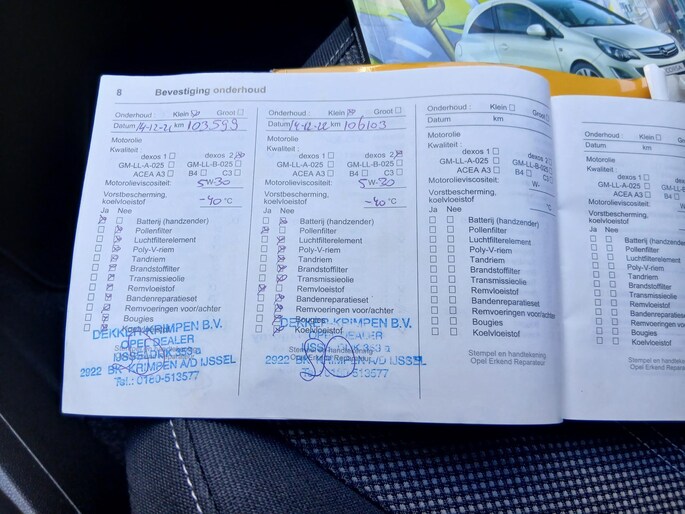 8 Bevestiging onderhoud
Onderhoud : Klein Groot
Datum 14-12-2 km 103.599
Motorolie
Kwaliteit :
dexos 1 dexos 2
GM-LL-A-025 GM-LL-B-025
ACEA A3 B4 C3
Motorolieviscositeit: 5W-30
Vorstbescherming,
koelvloeistof -40 °C
Ja Nee
Batterij (handzender)
Pollenfilter
Luchtfilterelement
Poly-V-riem
Tandriem
Brandstoffilter
Transmissieolie
Remvloeistof
Bandenreparatieset
Remvoeringen voor/achter
Bougies
DEKKER KRIMPEN B.V.
OPEL DEALER
IJSSELDIJK 353 a
2922 BK KRIMPEN A/D IJSSEL
Tel.: 0180-513577
Onderhoud : Klein Groot
Datum 14-12-22 km 106103
Motorolie
Kwaliteit :
dexos 1 dexos 2
GM-LL-A-025 GM-LL-B-025
ACEA A3 B4 C3
Motorolieviscositeit: 5W-30
Vorstbescherming,
koelvloeistof -40 °C
Ja Nee
Batterij (handzender)
Pollenfilter
Luchtfilterelement
Poly-V-riem
Tandriem
Brandstoffilter
Transmissieolie
Remvloeistof
Bandenreparatieset
Remvoeringen voor/achter
Bougies
Koelvloeistof
DEKKER KRIMPEN B.V.
DEALER
353 a
2922 KRIMPEN A/D IJSSEL
Tel.: 0180-513577
Stempel en handtekening
Opel Erkend Reparateur
Onderhoud : Klein Groot
Datum km
Motorolie
Kwaliteit :
dexos 1 dexos 2
GM-LL-A-025 GM-LL-B-025
ACEA A3 B4 C3
Motorolieviscositeit: W-
Vorstbescherming,
koelvloeistof °C
Ja Nee
Batterij (handzender)
Pollenfilter
Luchtfilterelement
Poly-V-riem
Tandriem
Brandstoffilter
Transmissieolie
Remvloeistof
Bandenreparatieset
Remvoeringen voor/achter
Bougies
Koelvloeistof
Stempel en handtekening
Opel Erkend Reparateur
Onderhoud : Klein
Datum km
Motorolie
Kwaliteit :
dexos 1
GM-LL-A-025
ACEA A3
Motorolieviscositeit:
Vorstbescherming,
koelvloeistof
Ja Nee
Batterij (handzender)
Pollenfilter
Luchtfilterelement
Poly-V-riem
Tandriem
Brandstoffilter
Transmissieolie
Remvloeistof
Bandenreparatieset
Remvoeringen voor/achter
Bougies
Koelvloeistof
Stempel en handtekening
Opel Erkend Reparateur